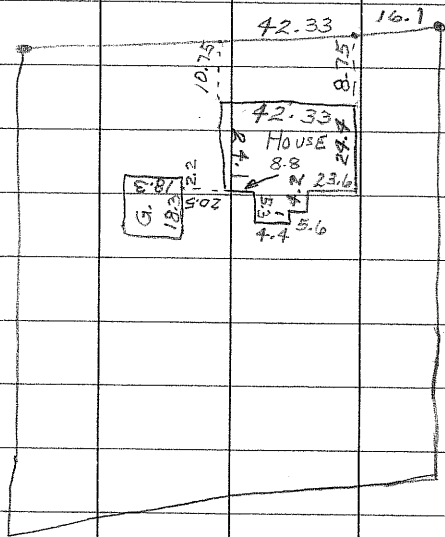 42.33 16.1
10.75
8.75
42.33
HOUSE
24.4
24.1
8.8
23.6
2.2
18.3
G.
18.3
20.5
5.3
1
4.2
4.4
5.6